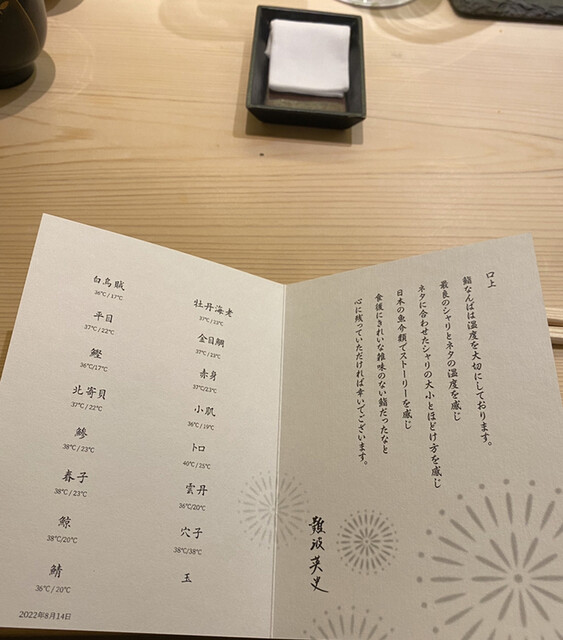 白烏賊
36℃ / 17℃
平目
37℃ / 22℃
鰹
36℃/17℃
北寄貝
37℃ / 22℃
鯵
38℃ / 23℃
春子
38℃ / 23℃
鯨
38℃/20℃
鯖
36℃ / 20℃
2022年8月14日
牡丹海老
37℃/23℃
金目鯛
37℃ / 23℃
赤身
37℃/23℃
小肌
36℃ / 19℃
トロ
40℃ / 25℃
雲丹
36℃/20℃
穴子
38℃/38℃
玉
口上
鮨なんばは温度を大切にしております。
最良のシャリとネタの温度を感じ
ネタに合わせたシャリの大小とほどけ方を感じ
日本の魚介類でストーリーを感じ
食後にきれいな雑味のない鮨だったなと
心に残っていただければ幸いでございます。
難波英史